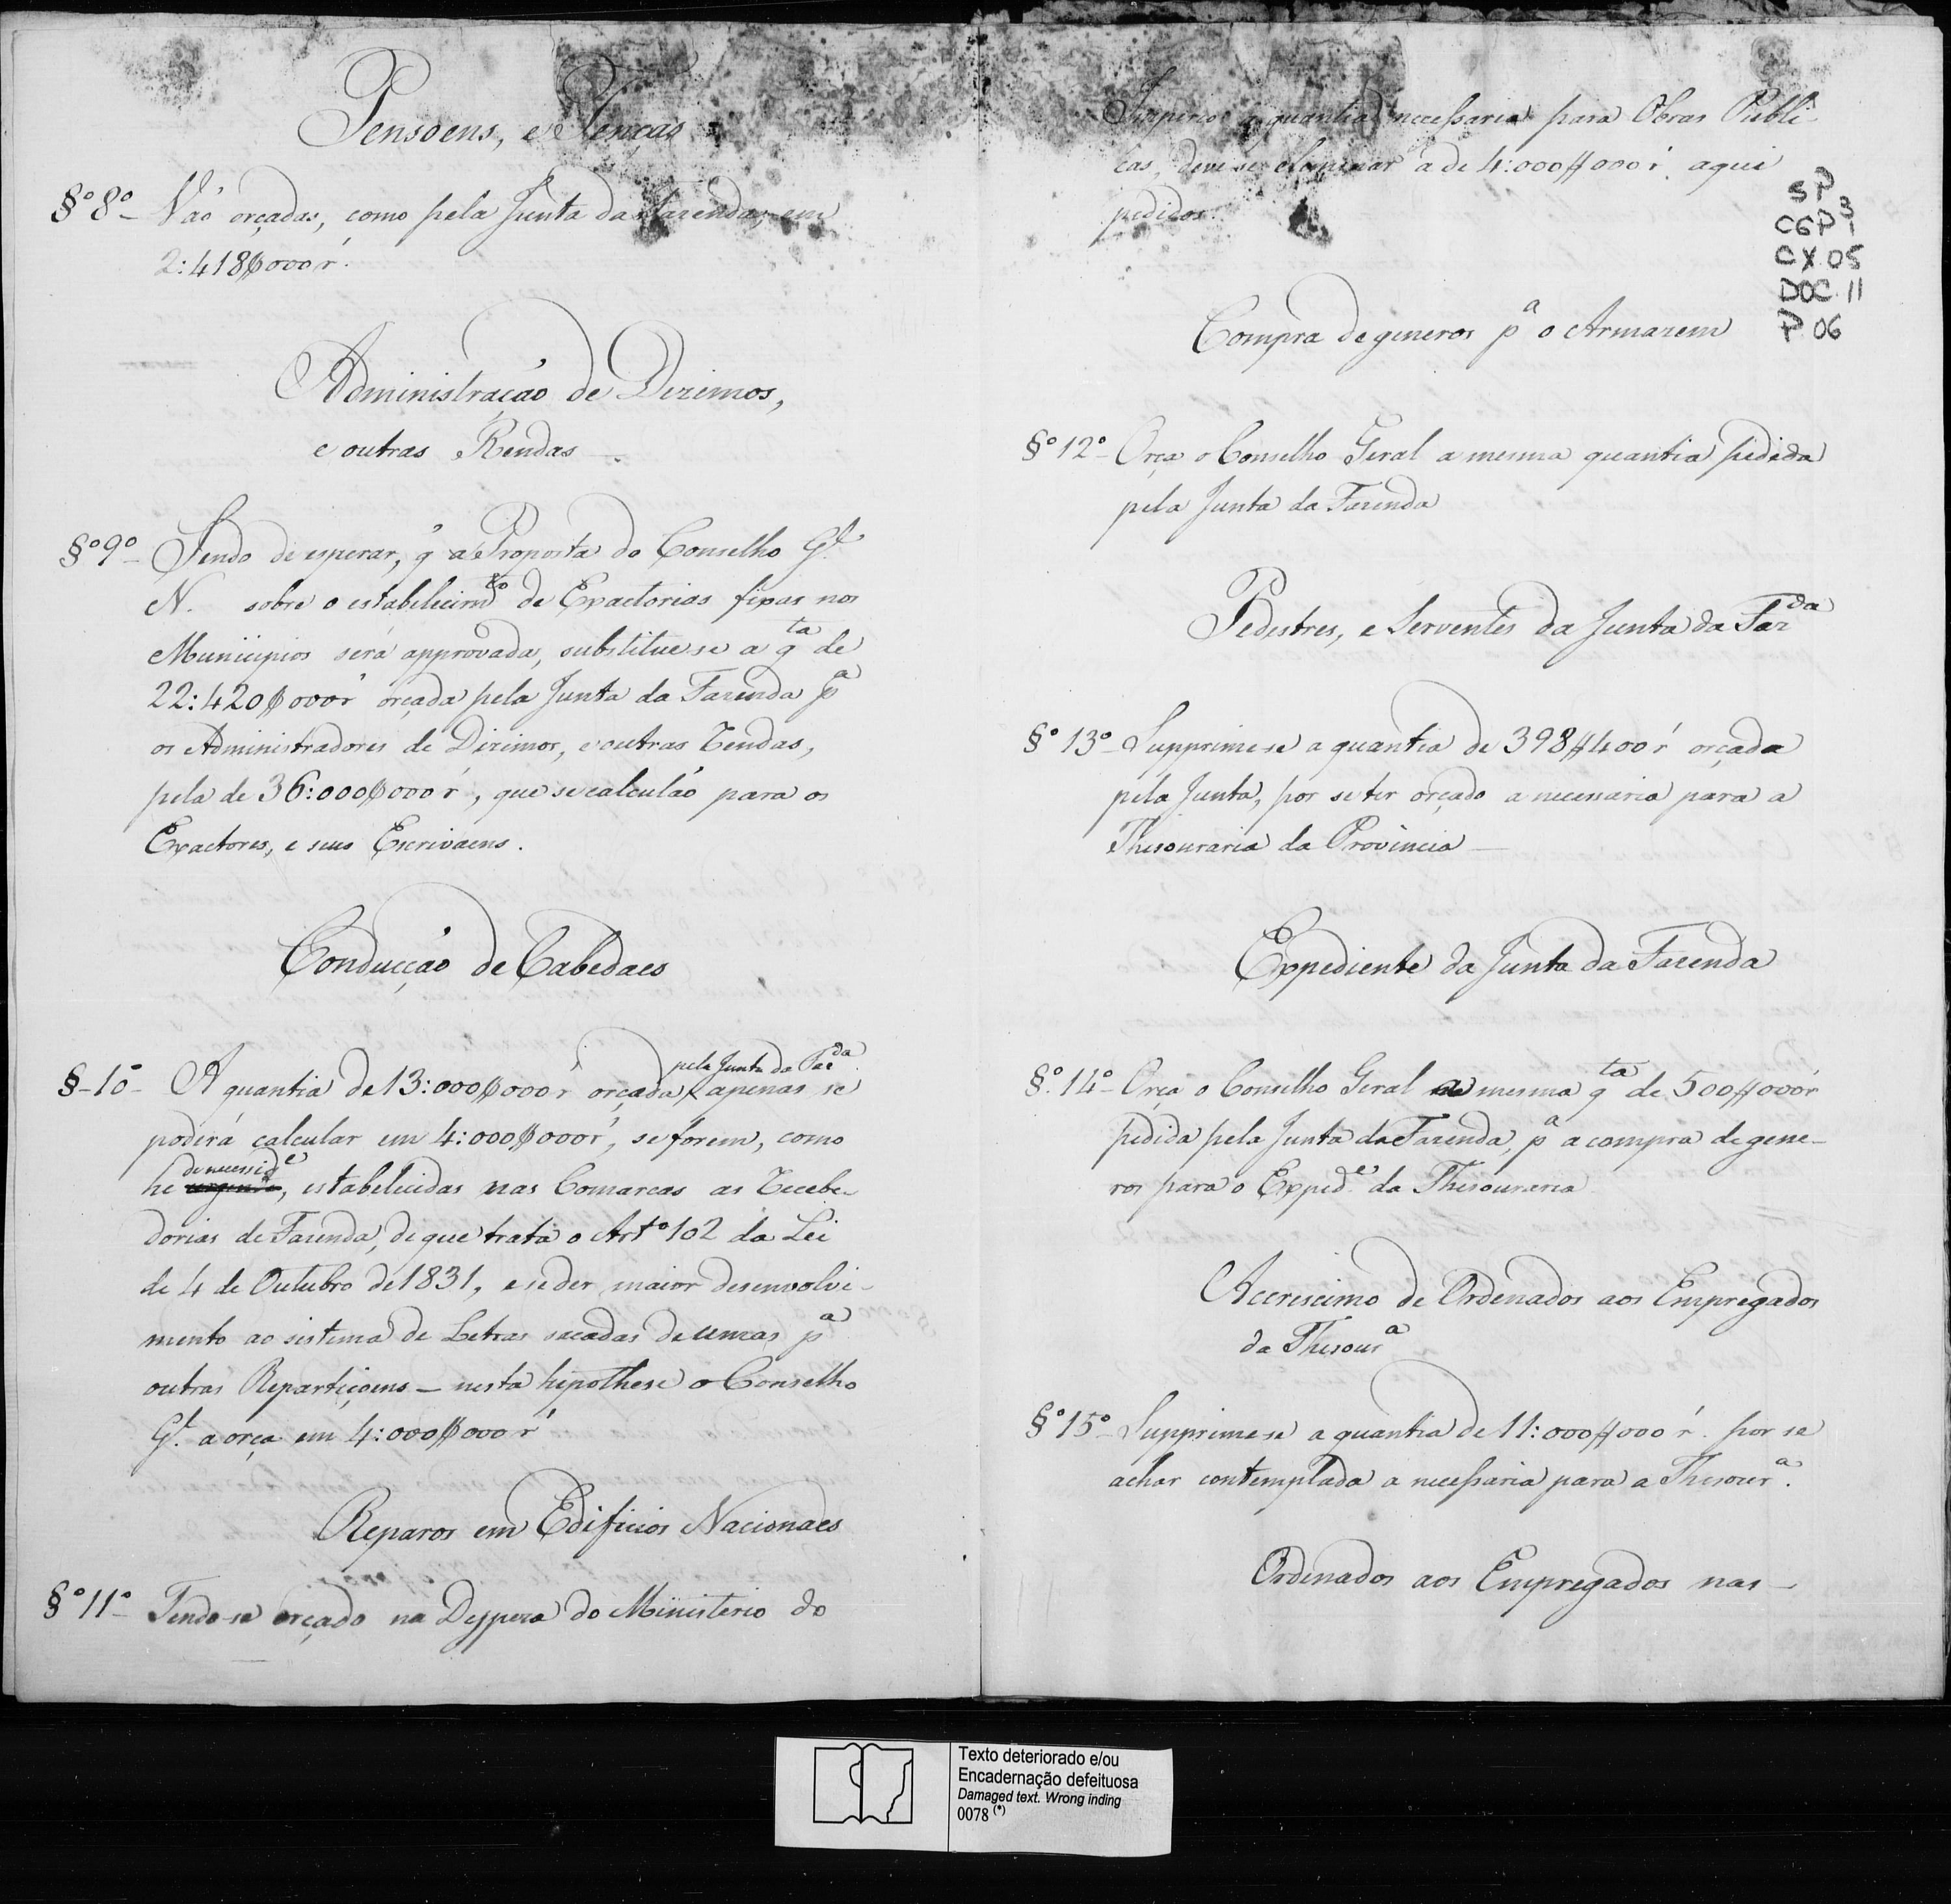 Pensoens, e Tenças
§º 8º - Vão orçadas, como pela Junta da Fazenda, em
2:418$000 r.
Administração de Dizimos,
e outras Rendas -.
§º 9º - Sendo de esperar, q̃ a Proposta do Conselho G.l
N. sobre o estabelecimto de Exactorias fixas nos
Municipios será approvada, substitue se a qta de
22:420$000 r orçada pela Junta da Fazenda pa
os Administradores de Dizimos, e outras Rendas,
pela de 36:000$000 r, que se calculão para os
Exactores, e seus Escrivaens.
Conducção de Cabedaes
§ - 10 - A quantia de 13:000$000 r orçada pela Junta da Fazda. apenas se
poderá calcular em 4:000$000 r, se forem, como
he de necesside, estabelecidas nas Comarcas as Recebe-
dorias de Fazenda, de que trata o Artº 102 da Lei
de 4 de Outubro de 1831, e se der maior desenvolvi-
mento ao sistema de Letras sacadas de umas pa
outras Repartiçoens - nesta hipothese o Conselho
G.l a orça em 4:000$000 r
Reparos em Edificios Nacionaes
§º 11º - Tendo-se orçado na Despeza do Ministerio do
Imperio a quantia necessaria para Obras Publi-
cas, deve se eleminar a de 4:000$000 r. aqui
pedidos.
SP
CGP 3
1
CX. 05
DOC. 11
P 06
Compra de generos pa o Armazem
§º 12º - Orça o Conselho Geral a mesma quantia pedida
pela Junta da Fazenda
Pedestres, e Serventes da Junta da Fazda
§º 13º - Supprime-se a quantia de 398$400 r orçada
pela Junta, por se ter orçado a necessaria para a
Thesouraria da Provincia -
Expediente da Junta da Fazenda
§º. 14º - Orça o Conselho Geral a mesma qta de 500$000 r
pedida pela Junta da Fazenda, pa a compra de gene-
ros para o Exped.e da Thesouraria
Accrescimo de Ordenados aos Empregados
da Thesoura
§º 15º - Supprime-se a quantia de 11:000$000 r. por se
achar contemplada a necessaria para a Thesoura.
Ordenados aos Empregados nas -
Texto deteriorado e/ou
Encadernação defeituosa
Damaged text. Wrong inding
0078 (*)